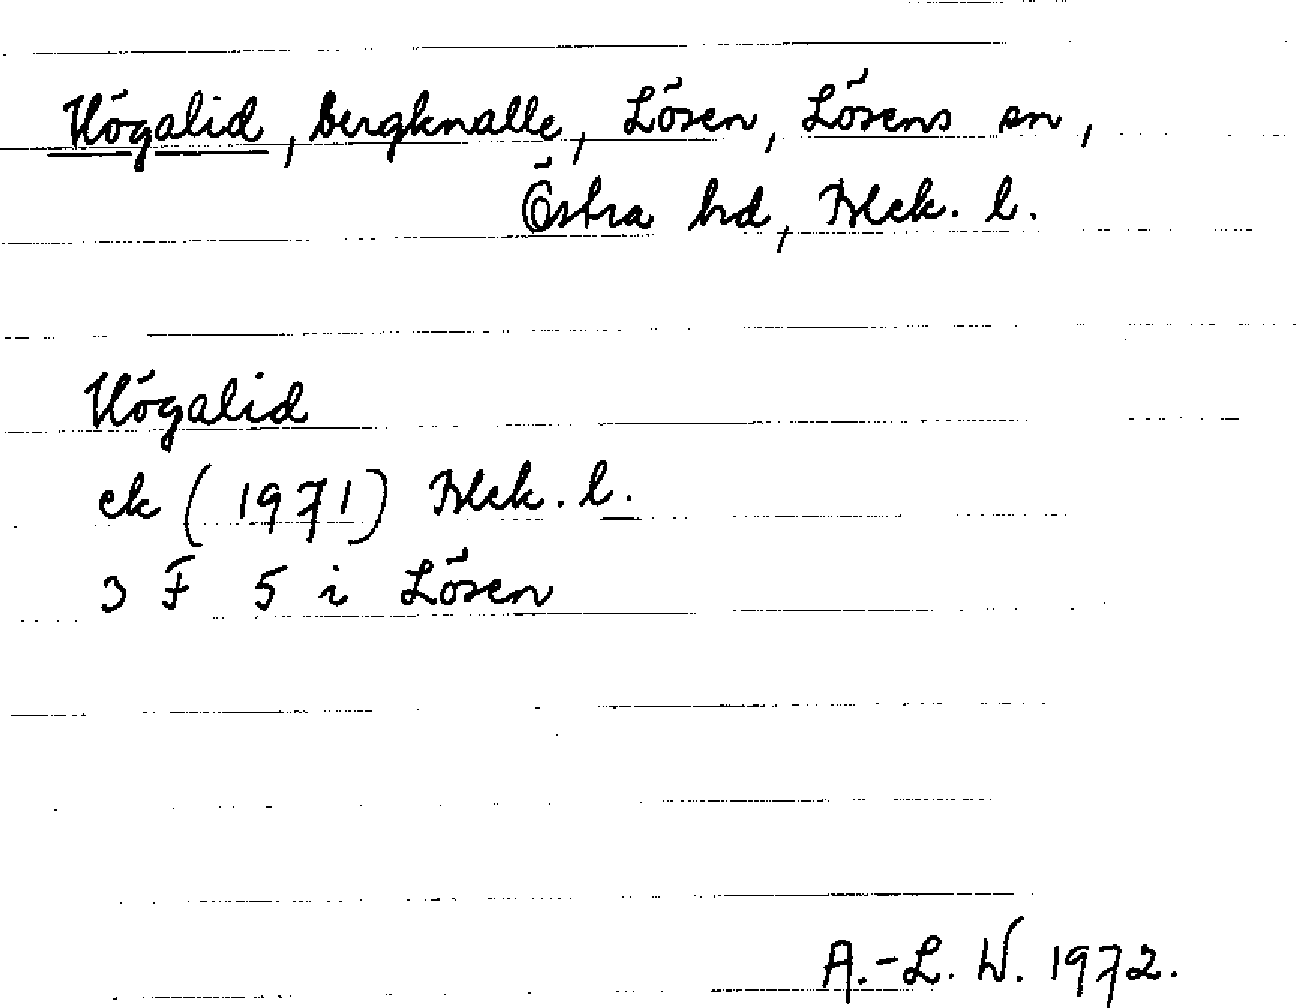 Högalid, bergknalle, Lösen, Lösens sn,
Östra hd, Blek. l.
Högalid
ek (1971) Blek. l.
3 F 5 i Lösen
A.-L. W. 1972.